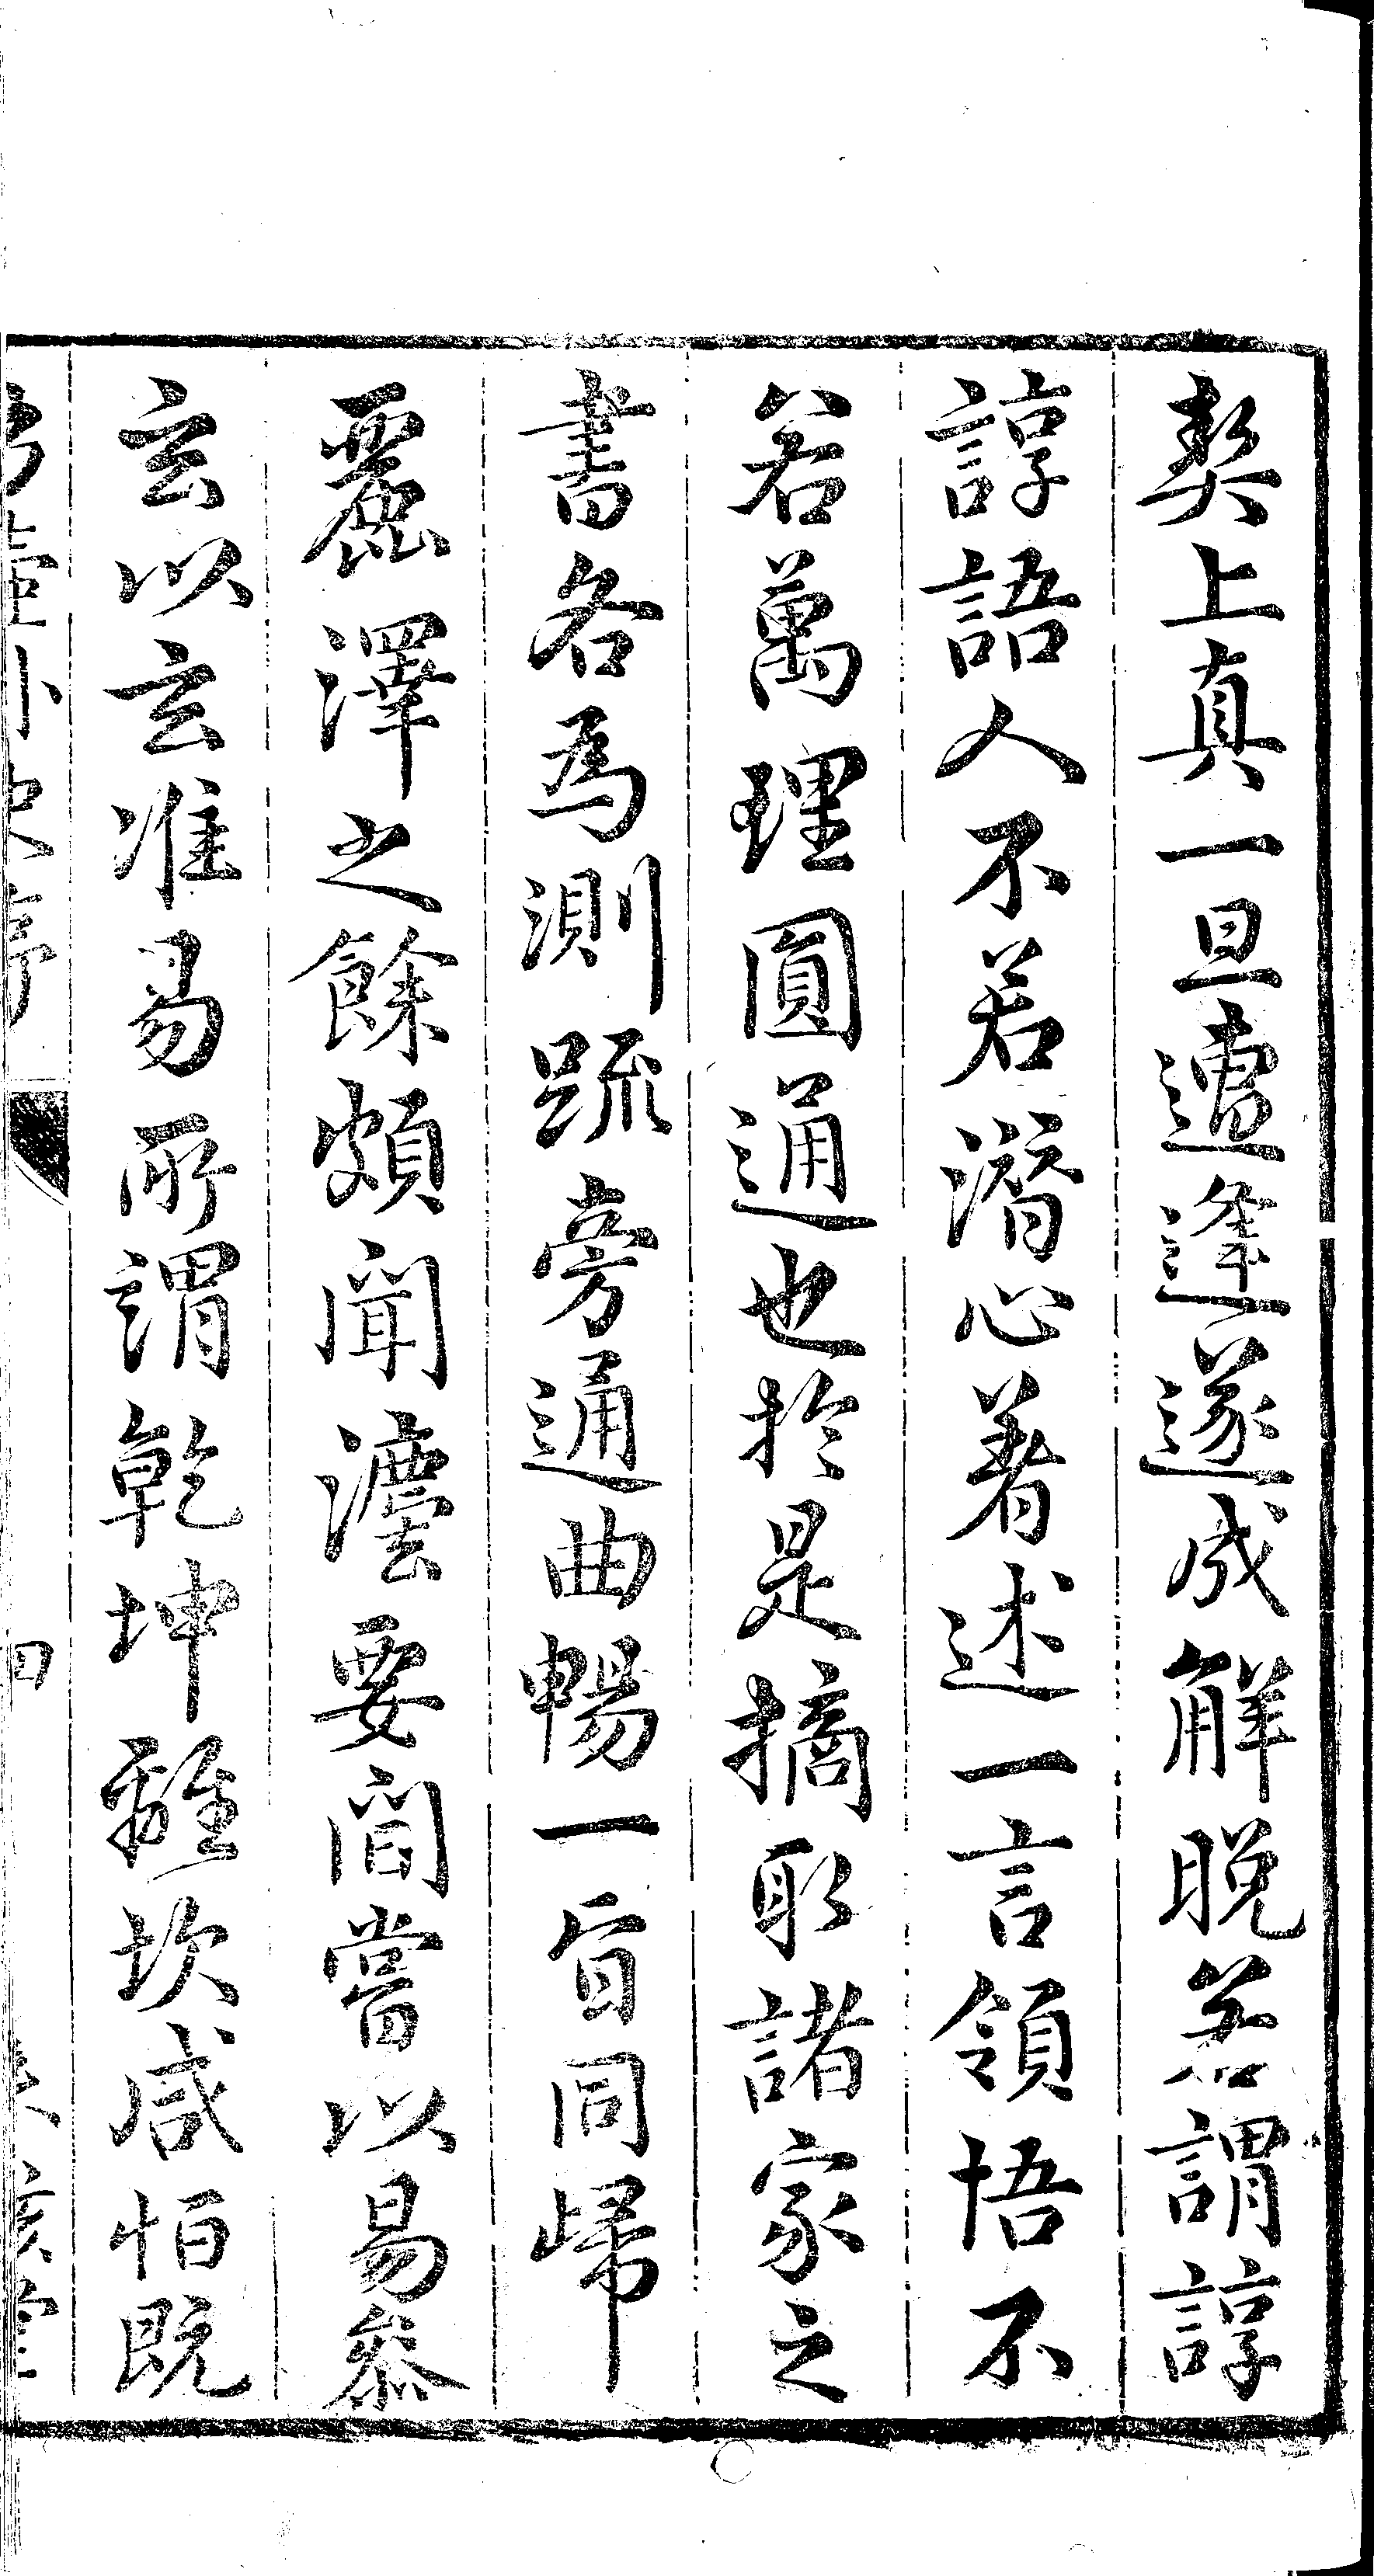 契上真一旦遭逢遂成解脫若謂諄
諄語人不若潛心著述一言領悟不
若萬理圓通也於是摘取諸家之
書各為測疏旁通曲暢一旨同歸
麗澤之餘頗聞濃要間嘗以易參
玄以玄准易所謂乾坤離坎咸恒既
四